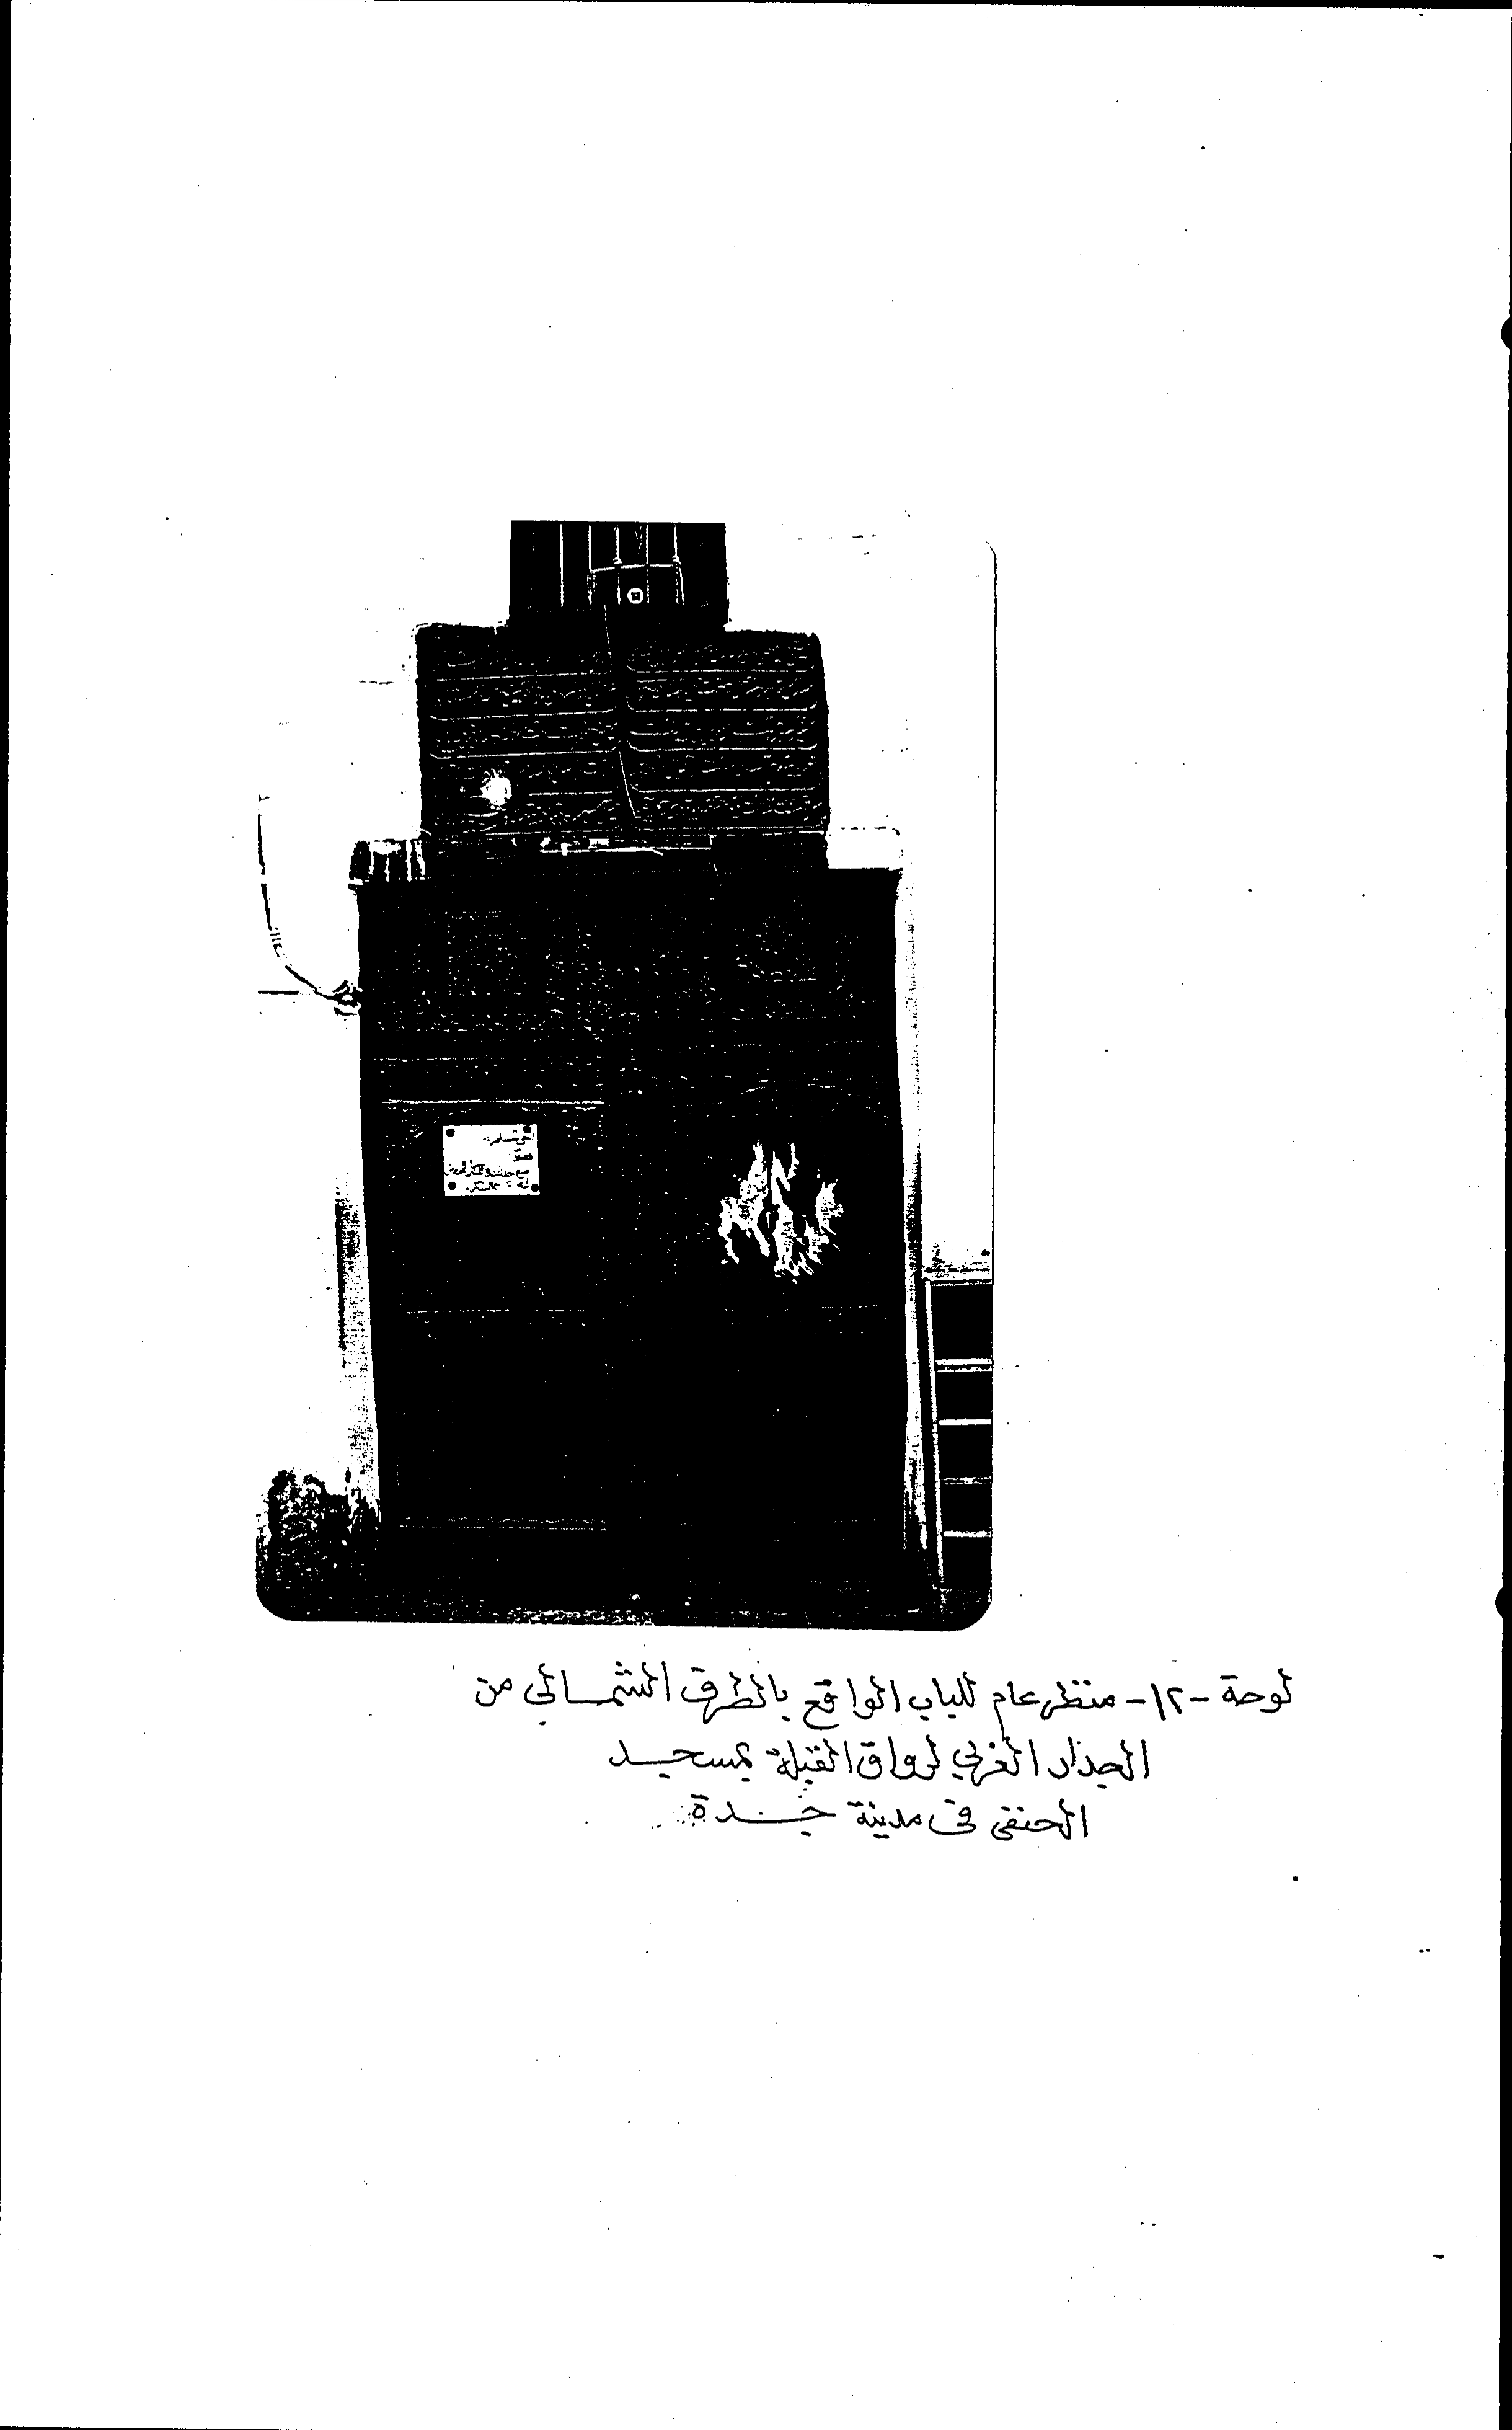 لوحة -١٢- منظر عام للباب الواقع بالطرف الشمالي من
الجدار الغربي لرواق القبلة بمسجد
الحنفي في مدينة جدة